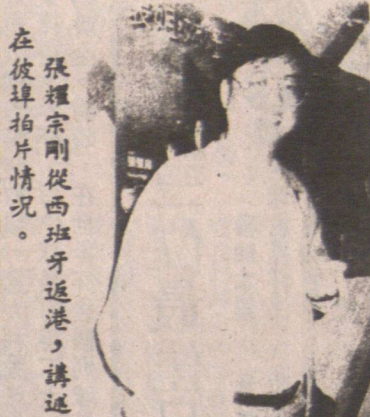 張耀宗剛從西班牙返港，講述
在彼埠拍片情况。